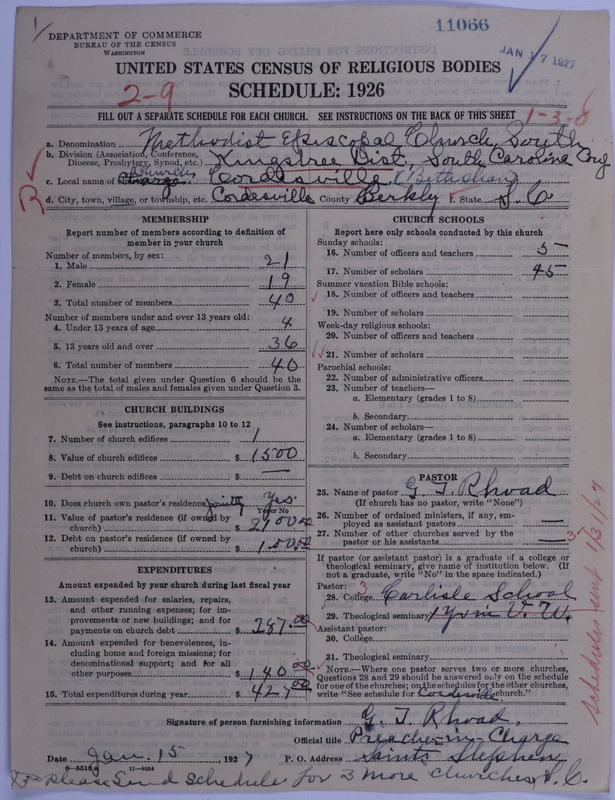 11066
DEPARTMENT OF COMMERCE
BUREAU OF THE CENSUS
WASHINGTON
JAN 17 1927
UNITED STATES CENSUS OF RELIGIOUS BODIES
SCHEDULE: 1926
2-9
FILL OUT A SEPARATE SCHEDULE FOR EACH CHURCH. SEE INSTRUCTIONS ON THE BACK OF THIS SHEET
1-3-8
a. Denomination Methodist Episcopal Church, South
b. Division (Association, Conference, Diocese, Presbytery, Synod, etc.) Kingstree Dist, South Carolina
c. Local name of Cordesville
d. City, town, village, or township, etc. Cordesville County Berkly f. State S. C.
R
MEMBERSHIP
Report number of members according to definition of member in your church
Number of members, by sex:
1. Male 21
2. Female 19
3. Total number of members 40
Number of members under and over 13 years old:
4. Under 13 years of age 4
5. 13 years old and over 36
6. Total number of members 40
NOTE.—The total given under Question 6 should be the same as the total of males and females given under Question 3.
CHURCH BUILDINGS
See instructions, paragraphs 10 to 12
7. Number of church edifices 1
8. Value of church edifices $ 1500
9. Debt on church edifices $ —
10. Does church own pastor's residence jointly Yes
Yes or No
11. Value of pastor's residence (if owned by church) $
12. Debt on pastor's residence (if owned by church) $ 100.00
EXPENDITURES
Amount expended by your church during last fiscal year
13. Amount expended for salaries, repairs, and other running expenses; for improvements or new buildings; and for payments on church debt $ 287.00
14. Amount expended for benevolences, including home and foreign missions; for denominational support; and for all other purposes $ 140.00
15. Total expenditures during year $ 427.00
CHURCH SCHOOLS
Report here only schools conducted by this church
Sunday schools:
16. Number of officers and teachers 5
17. Number of scholars 45
Summer vacation Bible schools:
18. Number of officers and teachers
19. Number of scholars
Week-day religious schools:
20. Number of officers and teachers
21. Number of scholars
Parochial schools:
22. Number of administrative officers
23. Number of teachers—
a. Elementary (grades 1 to 8)
b. Secondary
24. Number of scholars—
a. Elementary (grades 1 to 8)
b. Secondary
PASTOR
25. Name of pastor G. T. Rhoad
(If church has no pastor, write "None")
26. Number of ordained ministers, if any, employed as assistant pastors —
27. Number of other churches served by the pastor or his assistants 3
If pastor (or assistant pastor) is a graduate of a college or theological seminary, give name of institution below. (If not a graduate, write "No" in the space indicated.)
Pastor:
28. College Carlisle School
29. Theological seminary 1 Yr in V. U.
Assistant pastor:
30. College
31. Theological seminary
NOTE.—Where one pastor serves two or more churches, Questions 28 and 29 should be answered only on the schedule for one of the churches; on the schedules for the other churches, write "See schedule for Cordesville church."
Schedules sent 1/31/27
Signature of person furnishing information G. T. Rhoad,
Official title Preacher-in-Charge
Date Jan. 15 1927 P. O. Address Saints Stephen
8—5518a 11—9024
please send schedule for 3 more churches, S. C.